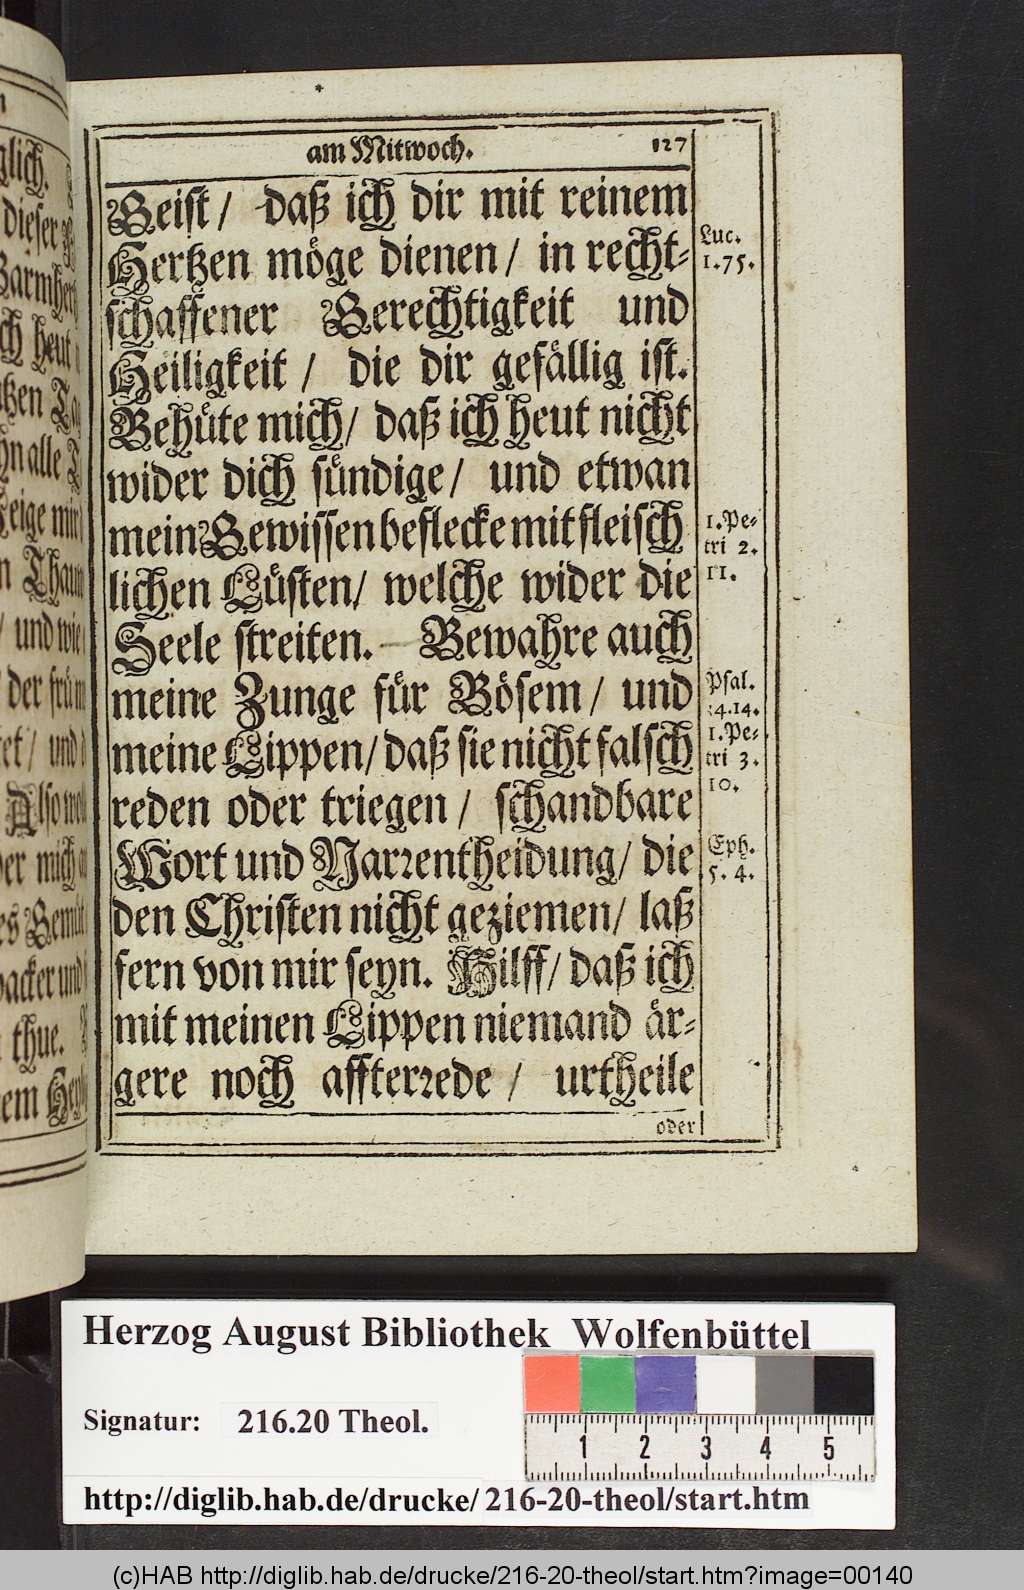 am Mitwoch. 127
Geist / daß ich dir mit reinem
Hertzen möge dienen / in recht-
schaffener Gerechtigkeit und
Heiligkeit / die dir gefällig ist.
Behüte mich / daß ich heut nicht
wider dich sündige / und etwan
mein Gewissen beflecke mit fleisch
lichen Lüsten / welche wider die
Seele streiten. Bewahre auch
meine Zunge für Bösem / und
meine Lippen / daß sie nicht falsch
reden oder triegen / schandbare
Wort und Narrentheidung / die
den Christen nicht geziemen / laß
fern von mir seyn. Hilff / daß ich
mit meinen Lippen niemand är-
gere noch affterrede / urtheile
oder
Luc.
1.75.
1. Pe-
tri 2.
11.
Psal.
34.14.
1. Pe-
tri 3.
10.
Eph.
5. 4.
glich.
dieser
Barmhertz
ch heut
tzen
hn alle
eige mir
n Thau
/ und wie
der früm
et / und
Also
er mich
es Gemüt
acker und
thue.
em
Herzog August Bibliothek Wolfenbüttel
Signatur: 216.20 Theol.
1 2 3 4 5
http://diglib.hab.de/drucke/216-20-theol/start.htm
(c)HAB http://diglib.hab.de/drucke/216-20-theol/start.htm?image=00140